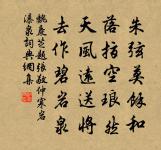 朱弦莫餘和
落指空琅然
天風遠送將
去作碧岩泉
魏慶芝題張敬仲寒岩
瀑泉詞典網集